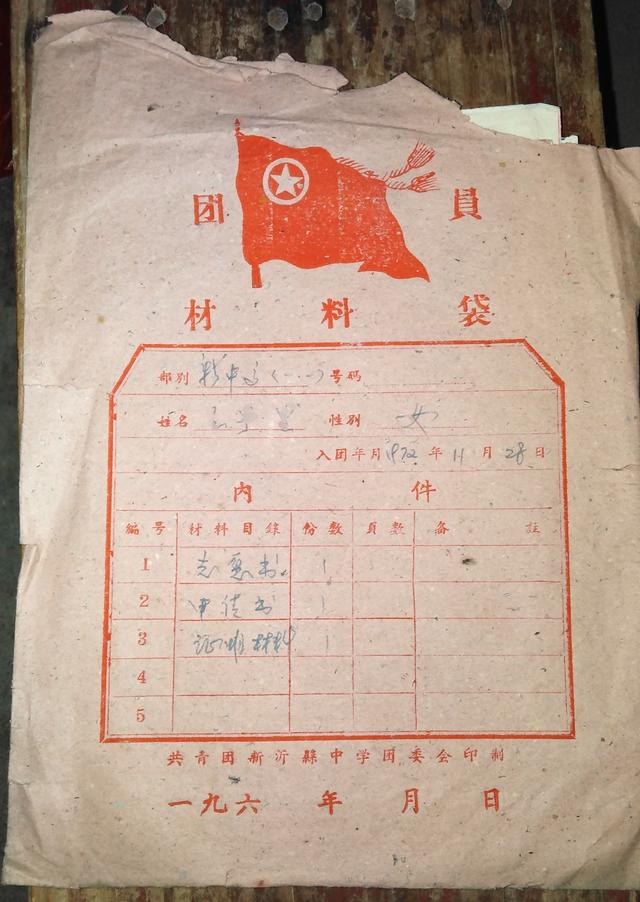 团 員
材 料 袋
部别 新中 号码
姓名 性别 女
入团年月 1972 年 11 月 28 日
内 件
編号 材料目錄 份数 頁数 备註
1 志愿书 1
2 申请书 1
3 证明材料 1
4
5
共青团新沂縣中学团委会印制
一九六 年 月 日